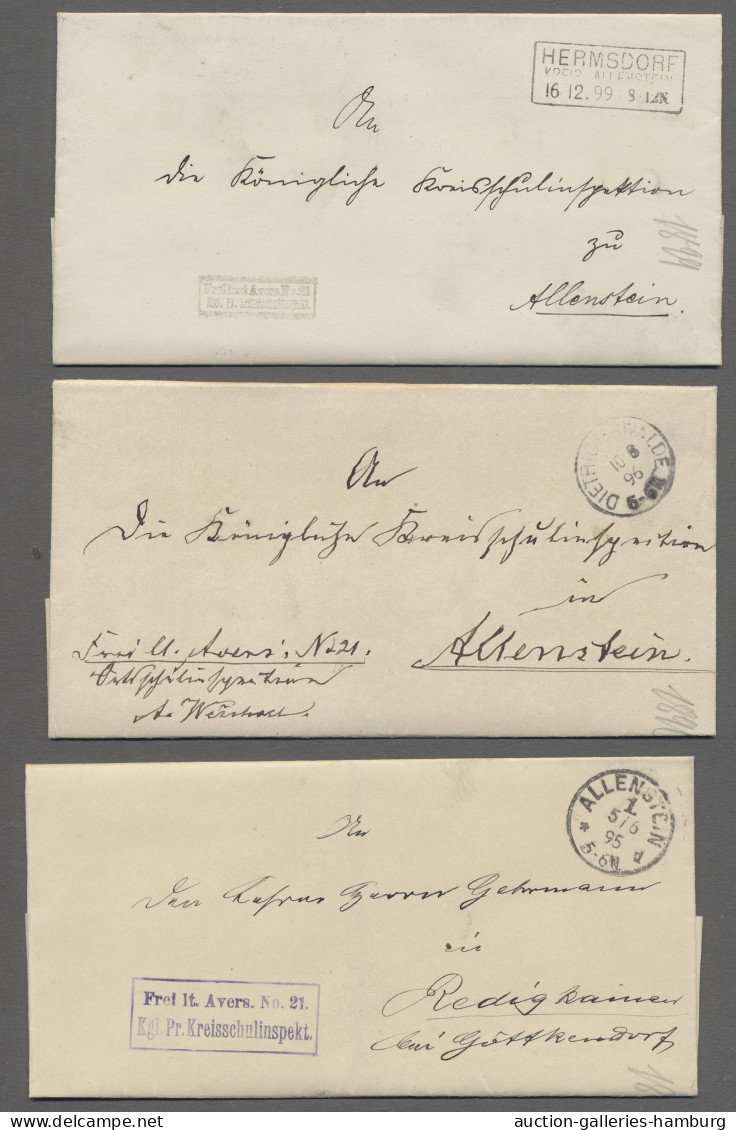 HERMSDORF
KREIS ALLENSTEIN
16 12.99 8-12N
An
die Königliche Kreisschulinspektion
zu
Allenstein.
Frei laut Avers No. 21
Kgl. Pr.
1899
DIETRICHSWALDE
10 8
96
5-6N
An
Die Königliche Kreisschulinspection
in
Allenstein.
Frei lt. Avers: No 21.
Ortsschulinspection
ALLENSTEIN
1.
5/6
95
* 5-6N d
An
den Lehrer Herrn Gehrmann
in
Redigkainen
bei Göttkendorf
Frei lt. Avers. No. 21.
Kgl. Pr. Kreisschulinspekt.
18
auction-galleries-hamburg.com